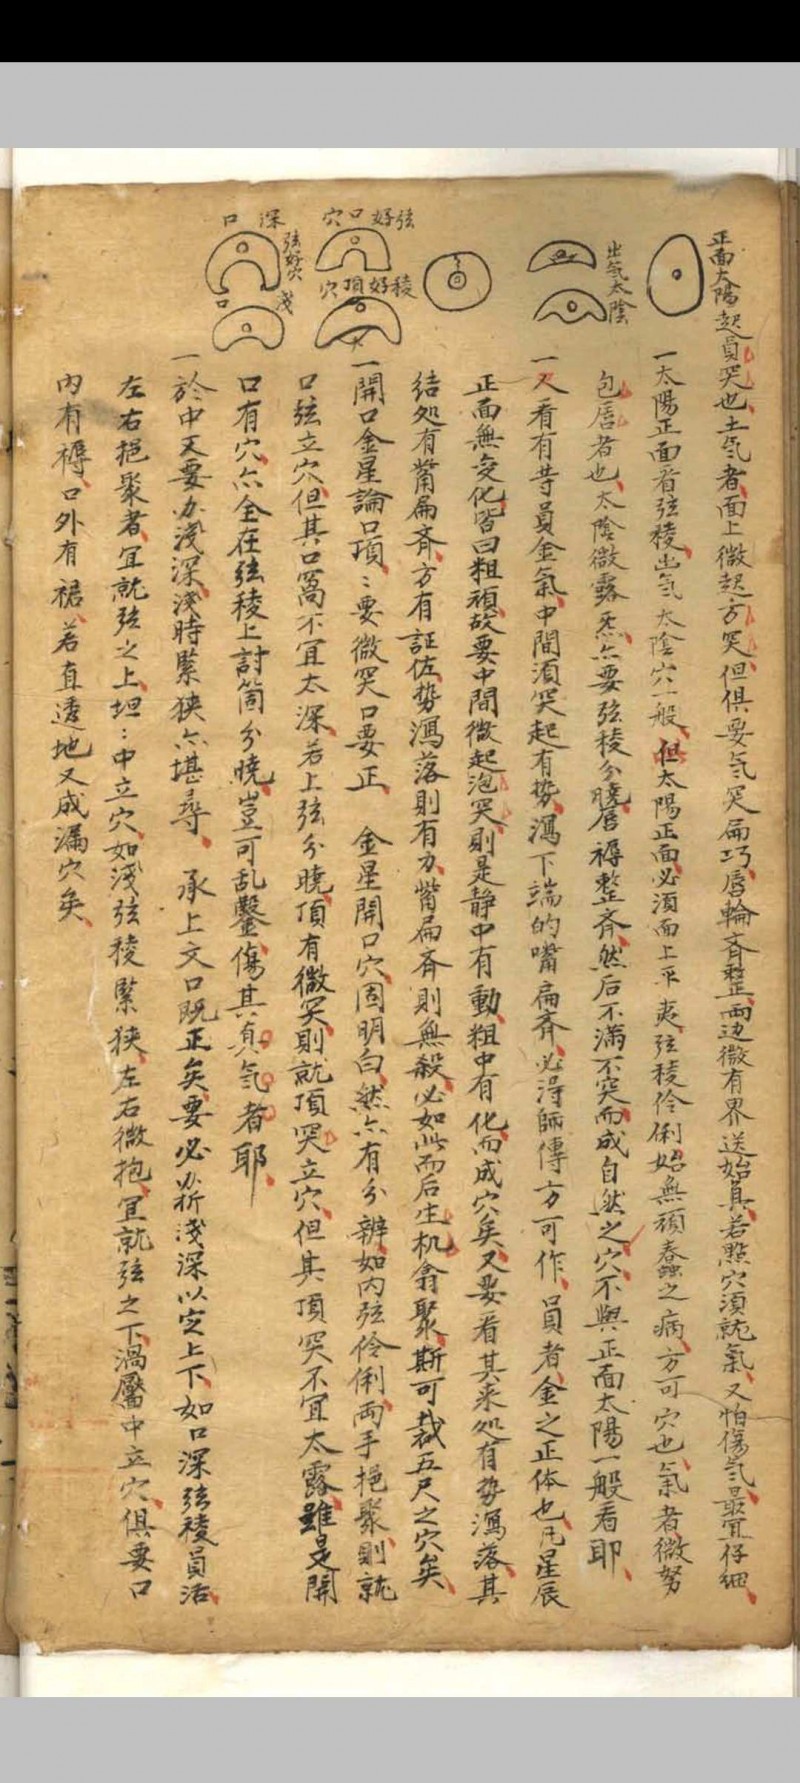 正面太陽起員突也土氣者面上微起方突但俱要气突扁巧唇輪齐整両边微有界送始真若點穴須就氣又怕傷气最宜仔細
一太陽正面看弦稜出气太陰穴一般但太陽正面必須面上平夷弦稜伶俐始無頑蠢之病方可穴也氣者微努
包唇者也太陰微露炁亦要弦稜分曉唇褥整齐然后不満不突而成自然之穴不與正面太陽一般看耶
出氣太陰
一又看有等員金氣中間湏突起有勢瀉下端的嘴扁齐必淂師傳方可作員者金之正体也凡星辰
正面無变化皆曰粗頑故要中間微起泡突則是静中有動粗中有化而成穴矣又要看其来処有势瀉落其
結処有觜扁齐方有証佐势瀉落則有力觜扁齐則無殺必如此而后生机翕聚斯可裁五尺之穴矣
弦好口穴
稜好頂穴
一開口金星論口頂：要微突口要正 金星開口穴固明白然亦有分辨如内弦伶俐両手抱聚則就
口弦立穴但其口窩不宜太深若上弦分曉頂有微突則就頂突立穴但其頂突不宜太露雖是開
口有穴亦全在弦稜上討箇分曉豈可乱鑿傷其真气者耶
深口
弦好穴
浅口
一於中又要办浅深浅時緊狭亦堪尋 承上文口既正矣要必析淺深以定上下如口深弦稜員活
左右抱聚者宜就弦之上坦：中立穴如淺弦稜緊狭左右微抱宜就弦之下渦靨中立穴俱要口
内有褥口外有裙若直透地又成漏穴矣